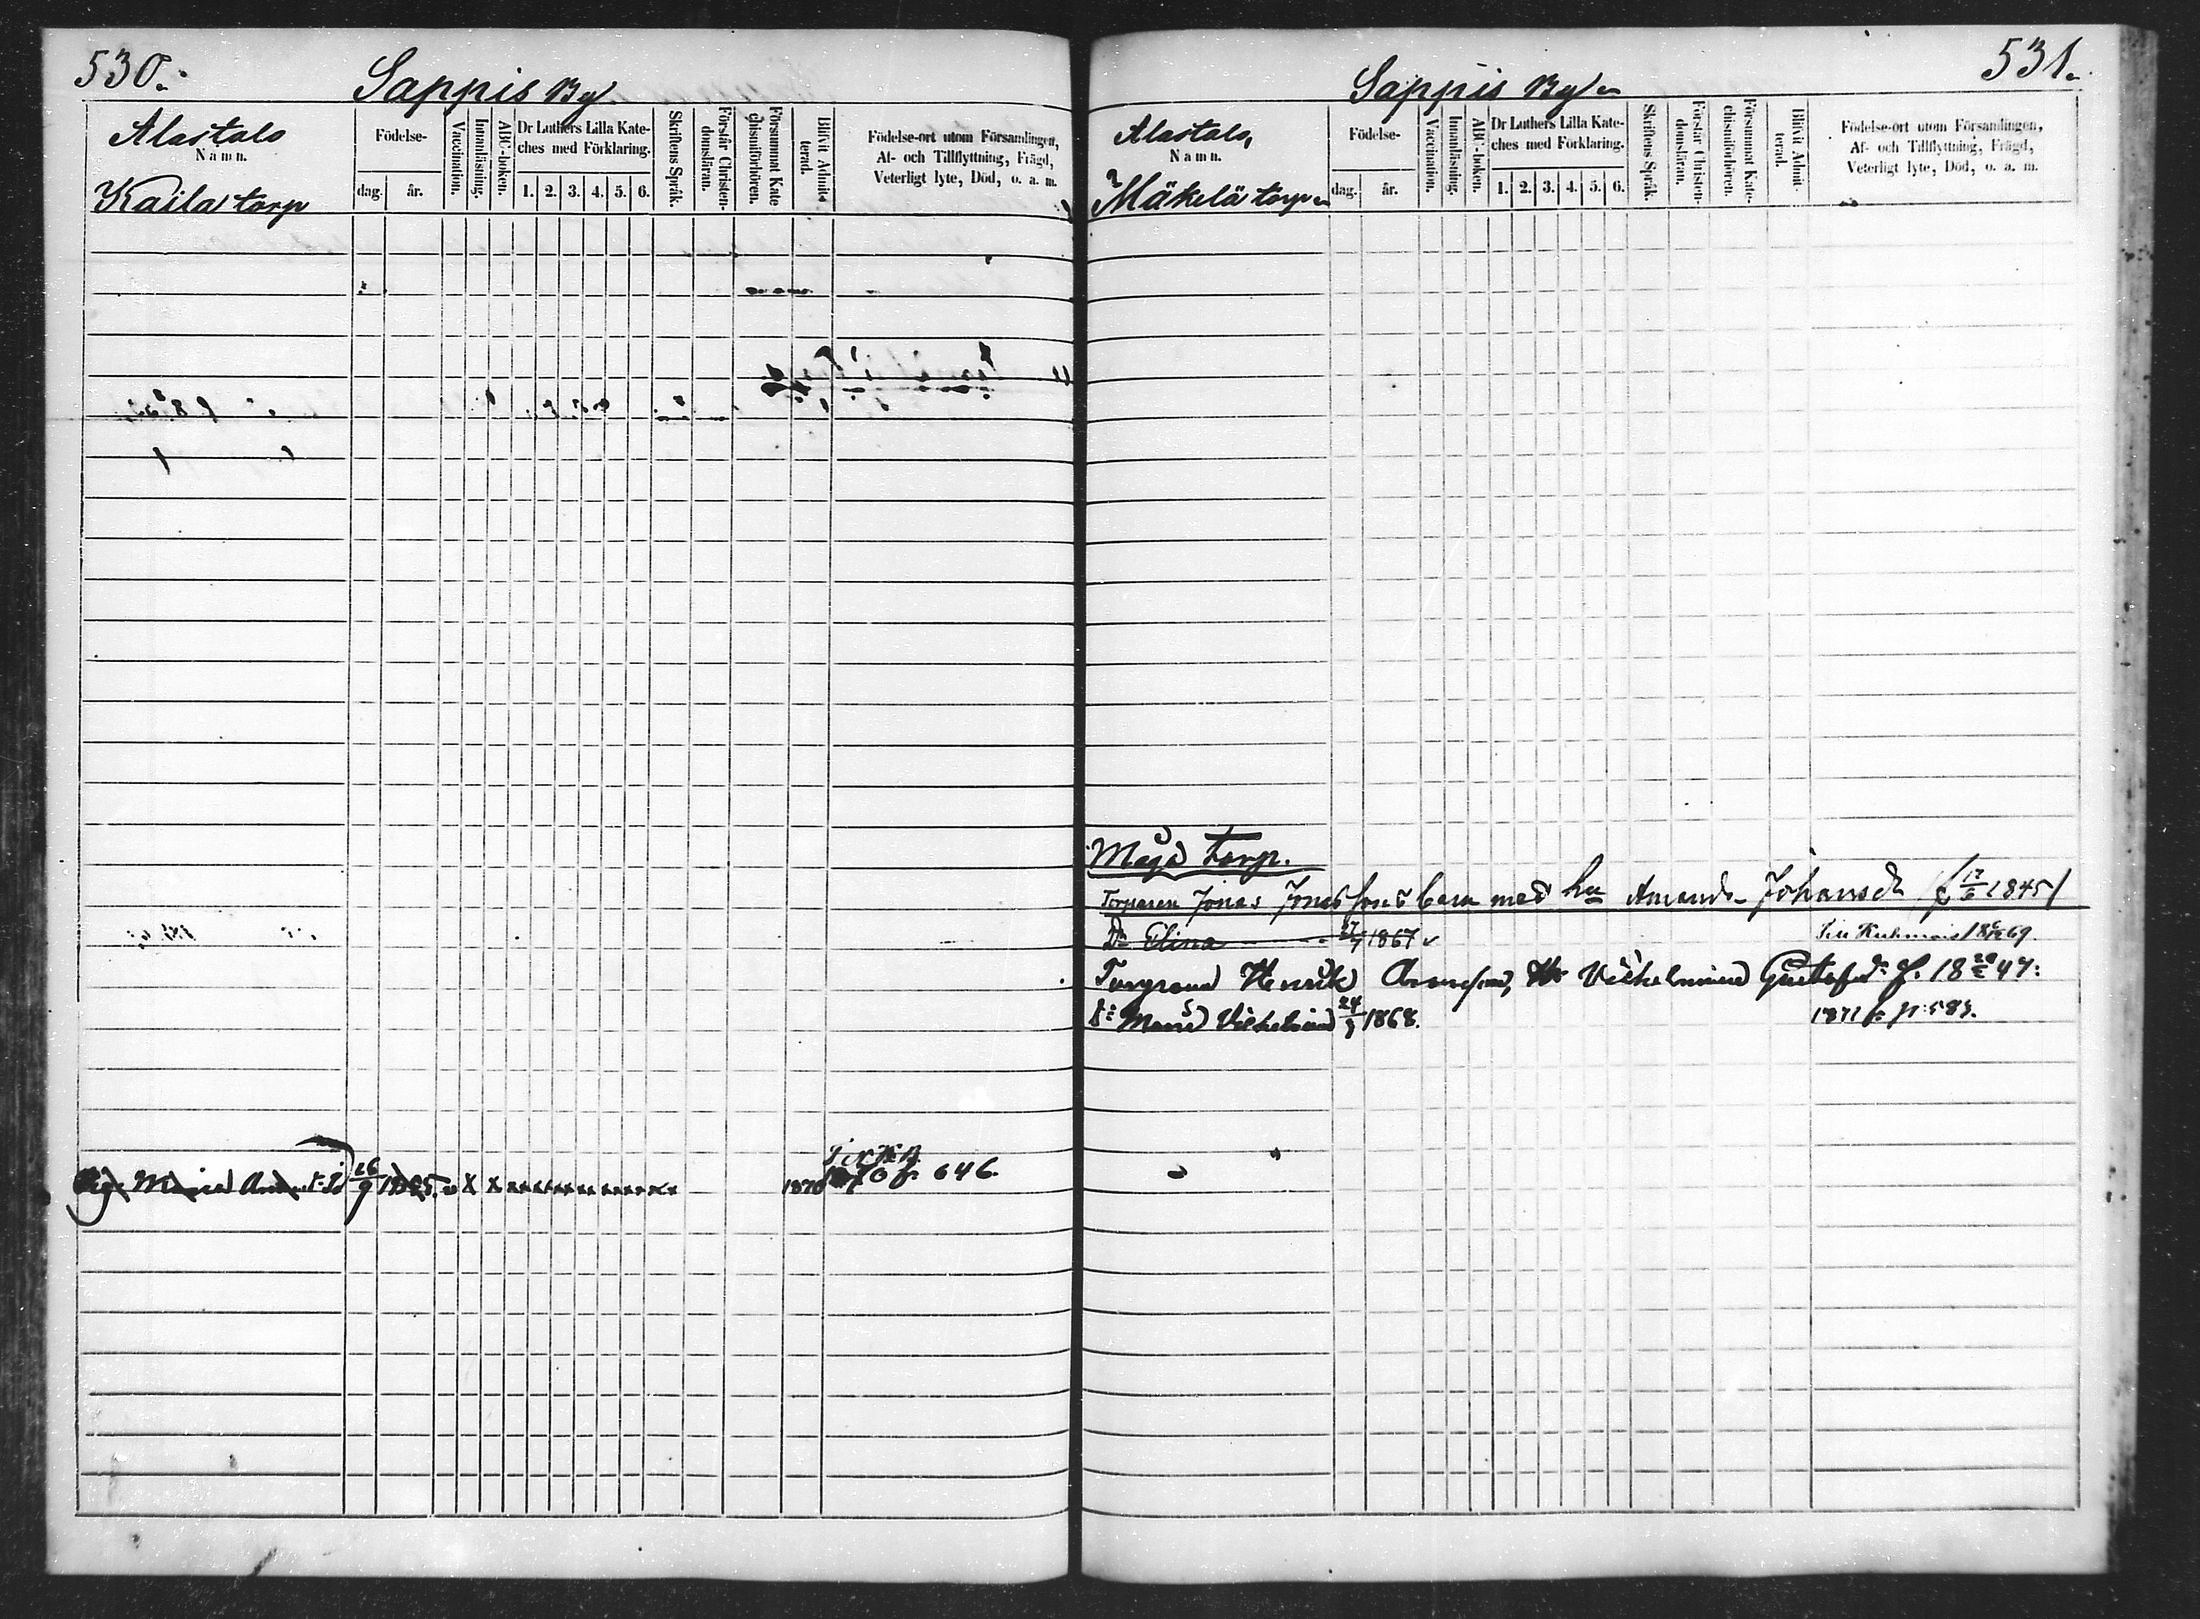 530.
Sappis By
Alastalo
Namn.
Kaila torp
Födelse-
dag.
år.
Vaccination.
Innanläsning.
ABC-boken.
Dr Luthers Lilla Kate-
ches med Förklaring.
1. 2. 3. 4. 5. 6.
Skriftens Språk.
Förstår Christen-
domsläran.
Försummat Kate
chismiförhören.
Blifvit Admit
terad.
Födelse-ort utom Församlingen,
Af- och Tillflyttning, Frägd,
Veterligt lyte, Död, o. a. m.
Maria 26/9
1870
1870 p. 646.
531.
Sappis By
Alastalo,
Namn.
Mäkelä torp
Födelse-
dag.
år.
Vaccination.
Innanläsning.
ABC-boken.
Dr Luthers Lilla Kate-
ches med Förklaring.
1. 2. 3. 4. 5. 6.
Skriftens Språk.
Förstår Christen-
domsläran.
Försummat Kate-
chismiförhören.
Blifvit Admit-
terad.
Födelse-ort utom Församlingen,
Af- och Tillflyttning, Frägd,
Veterligt lyte, Död, o. a. m.
torp.
Torparen Jonas barn med Amanda 1845
Dr Elina 1867 69.
Henrik Gustafsdr f. 18 47.
Maria 24/9 1868. 1871 p. 583.